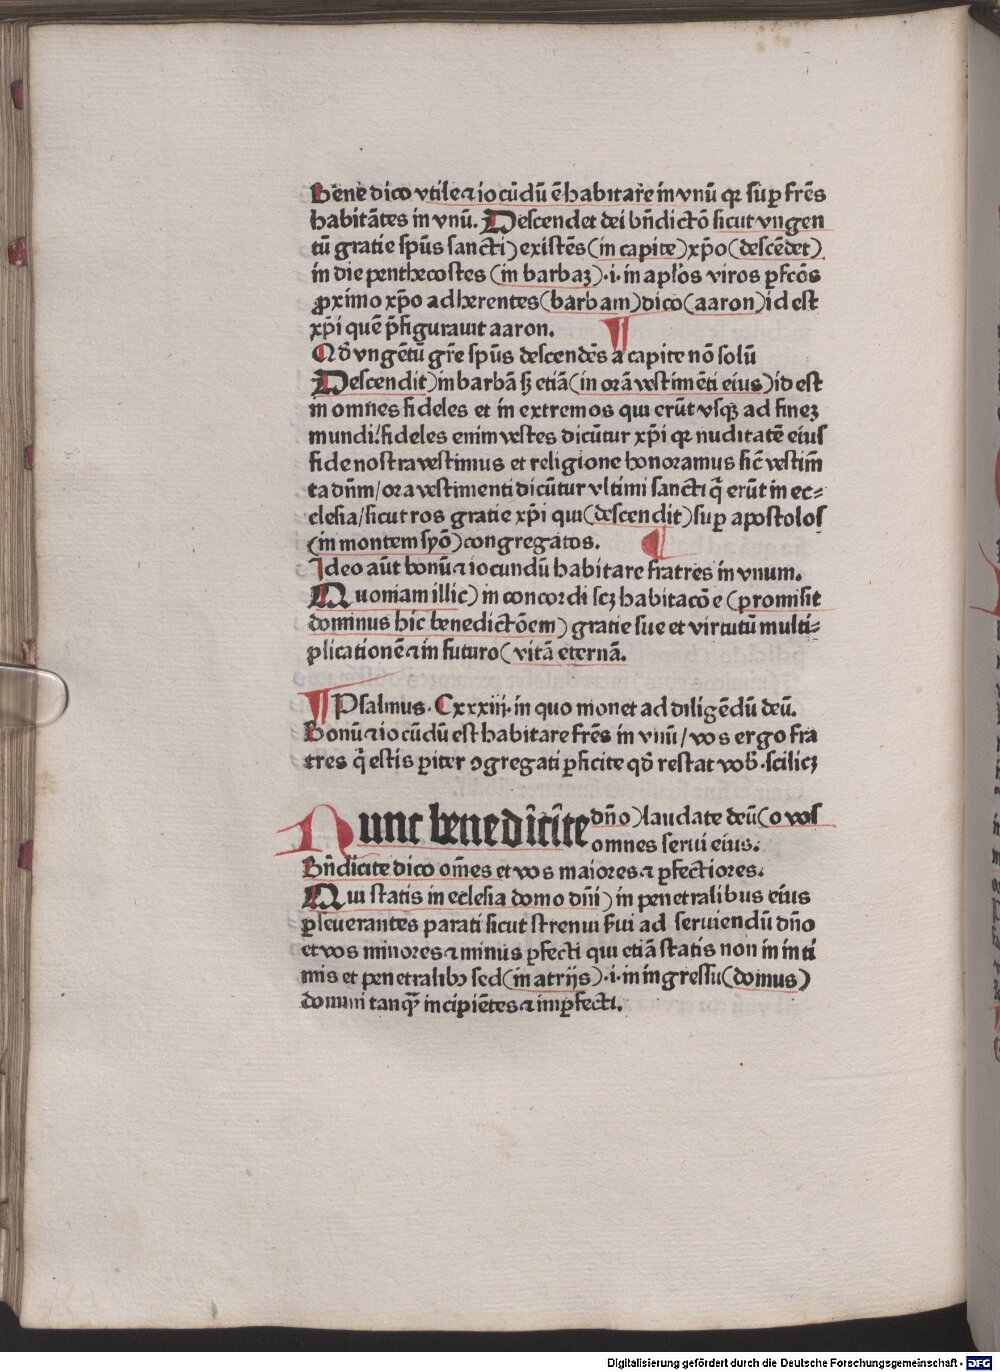 Bene dico vtile ⁊ iocūdū ē habitare in vnū qꝛ suꝑ fr̄es
habitātes in vnū. Descendet dei bn̄dictō sicut vngen
tū gratie spūs sancti) existēs (in capite) xp̄o (descēdet)
in die penthecostes (in barbaꝫ) .i. in apl'os viros ꝑfcōs
ꝓximo xp̄o adherentes (barbam) dico (aaron) id est
xp̄i quē p̄figurauit aaron.
¶
Qd' vngētū gr̄e spūs descendēs a capite nō solū
Descendit) in barbā sꝫ etiā (in orā vestimēti eius) id est
in omnes fideles et in extremos qui erūt vsqꝫ ad fineꝫ
mundi. fideles enim vestes dicūtur xp̄i qꝛ nuditatē eius
fide nostra vestimus et religione honoramus sic̄ vestim̄
ta dn̄m / ora vestimenti dicūtur vltimi sancti q̄ erūt in ec⸗
clesia / sicut ros gratie xp̄i qui (descendit) suꝑ apostolos
(in montem syō) congregatos. ¶
Ideo aūt bonū ⁊ iocundū habitare fratres in vnum.
Quoniam illic) in concordi scꝫ habitacōe (promisit
dominus hic benedictōem) gratie sue et virtutū multi⸗
plicationē ⁊ in futuro (vitā eternā.
¶ Psalmus. Cxxxiij. in quo monet ad diligēdū deū.
Bonū ⁊ iocūdū est habitare fr̄es in vnū / vos ergo fra
tres q̄ estis ꝑiter ꝯgregati ꝑficite qd' restat vob'. sciliꝫ
Nunc benedīcīte dn̄o) laudate deū (o vos
omnes serui eius.
Bn̄dicite dico om̄es et vos maiores ⁊ ꝑfectiores.
Qui statis in eclesia domo dn̄i) in penetralibus eius
ꝑseuerantes parati sicut strenui s'ui ad seruiendū dn̄o
et vos minores ⁊ minus ꝑfecti qui etiā statis non in inti
mis et penetralibꝫ sed (in atrijs) .i. in ingressu (domus)
domini tanqꝫ incipiētes ⁊ imꝑfecti.
Digitalisierung gefördert durch die Deutsche Forschungsgemeinschaft - DFG